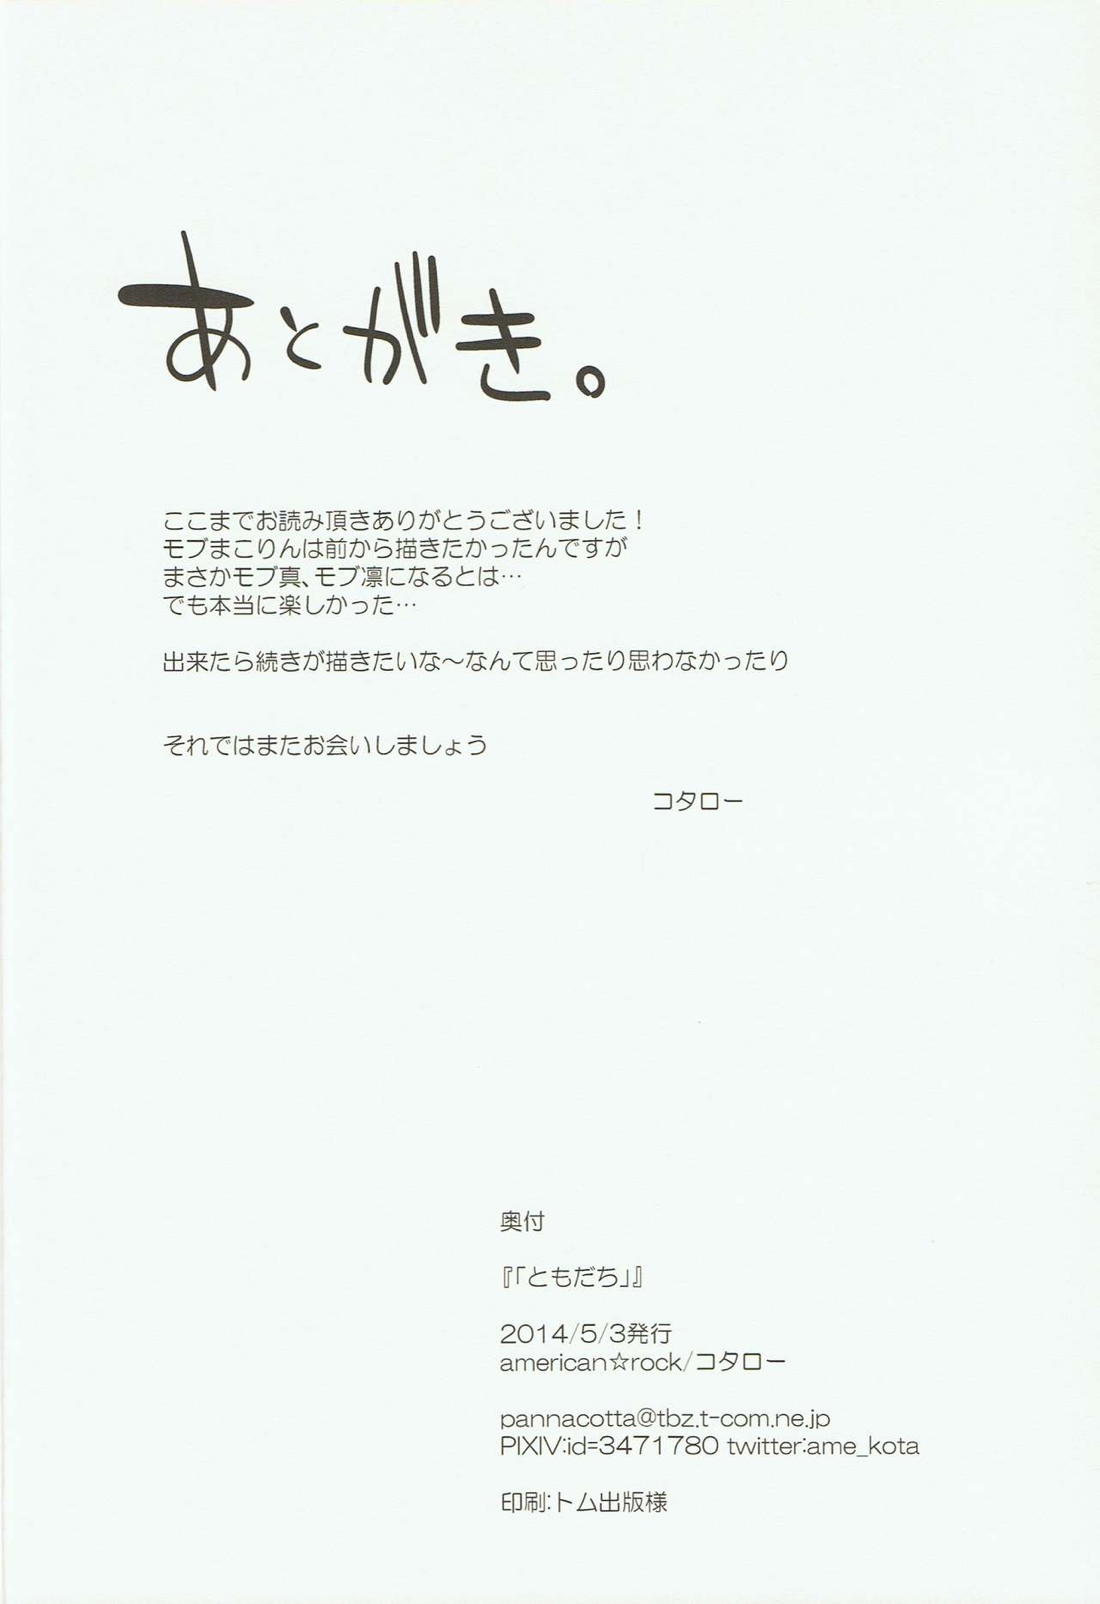 あとがき。
ここまでお読み頂きありがとうございました!
モブまこりんは前から描きたかったんですが
まさかモブ真、モブ凛になるとは…
でも本当に楽しかった…
出来たら続きが描きたいな〜なんて思ったり思わなかったり
それではまたお会いしましょう
コタロー
奥付
『「ともだち」』
2014/5/3発行
american☆rock/コタロー
pannacotta@tbz.t-com.ne.jp
PIXIV:id=3471780 twitter:ame_kota
印刷:トム出版様